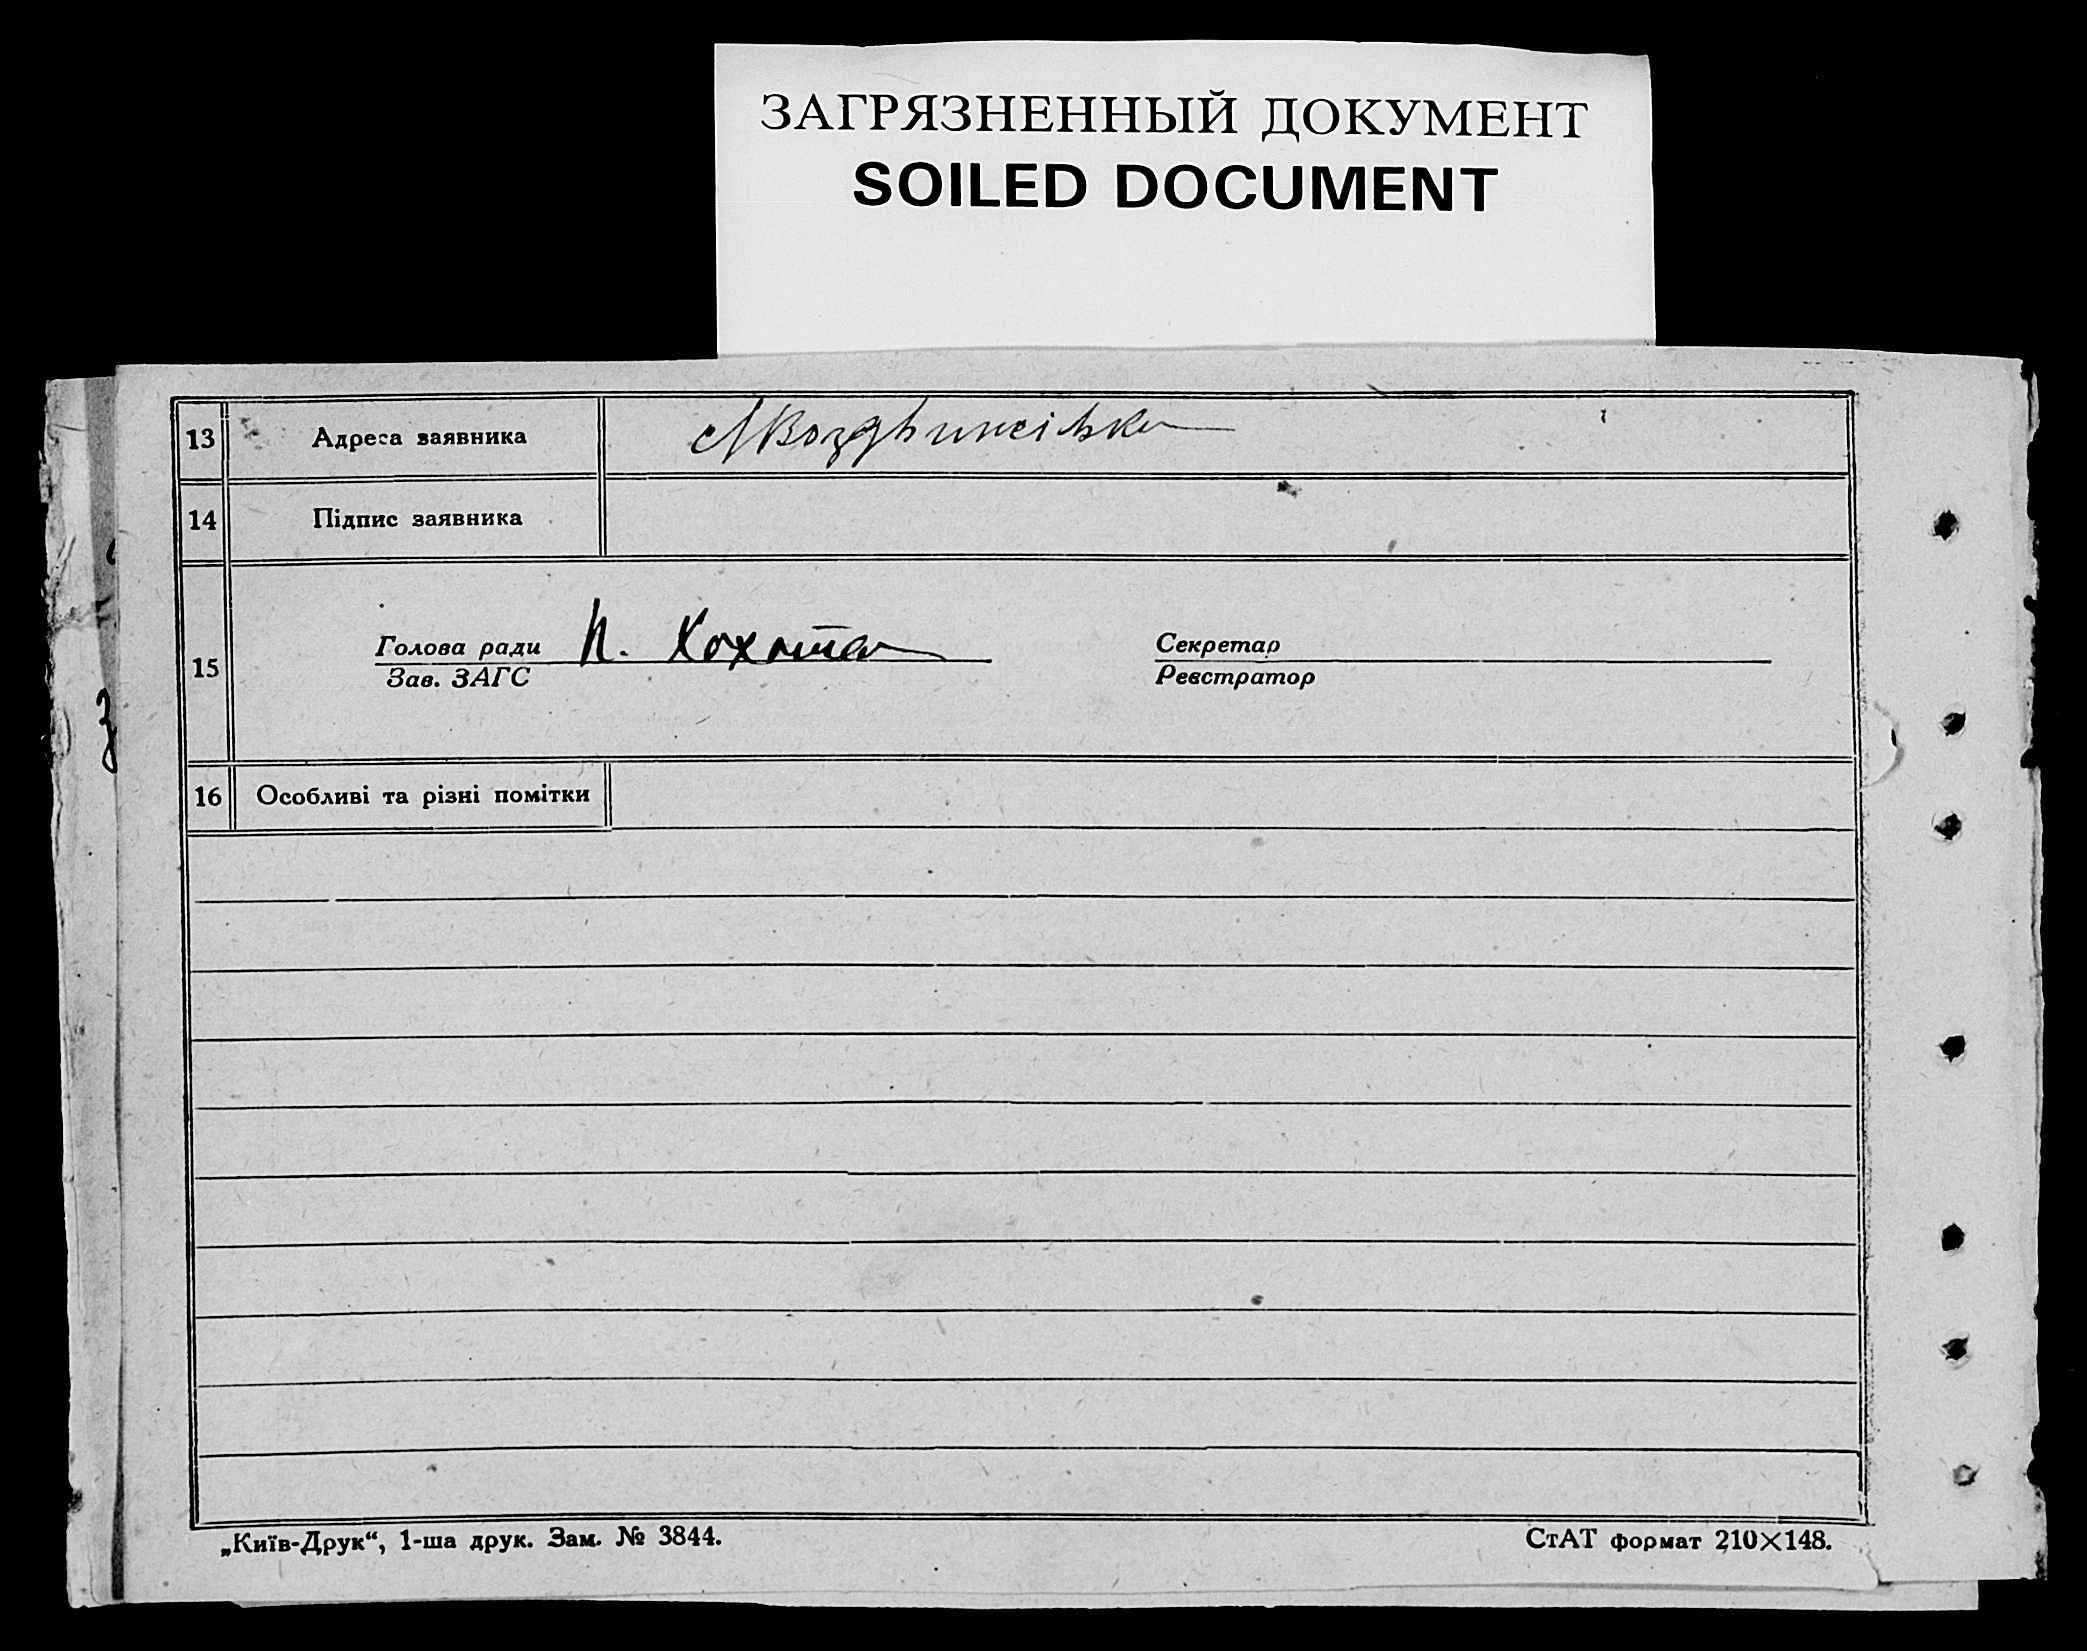 ЗАГРЯЗНЕННЫЙ ДОКУМЕНТ
SOILED DOCUMENT
13 Адреса заявника
14 Підпис заявника
15 Голова ради П. Хохота Секретар
Зав. ЗАГС Реєстратор
16 Особливі та різні помітки
„Київ-Друк“, 1-ша друк. Зам. № 3844. СтАТ формат 210×148.